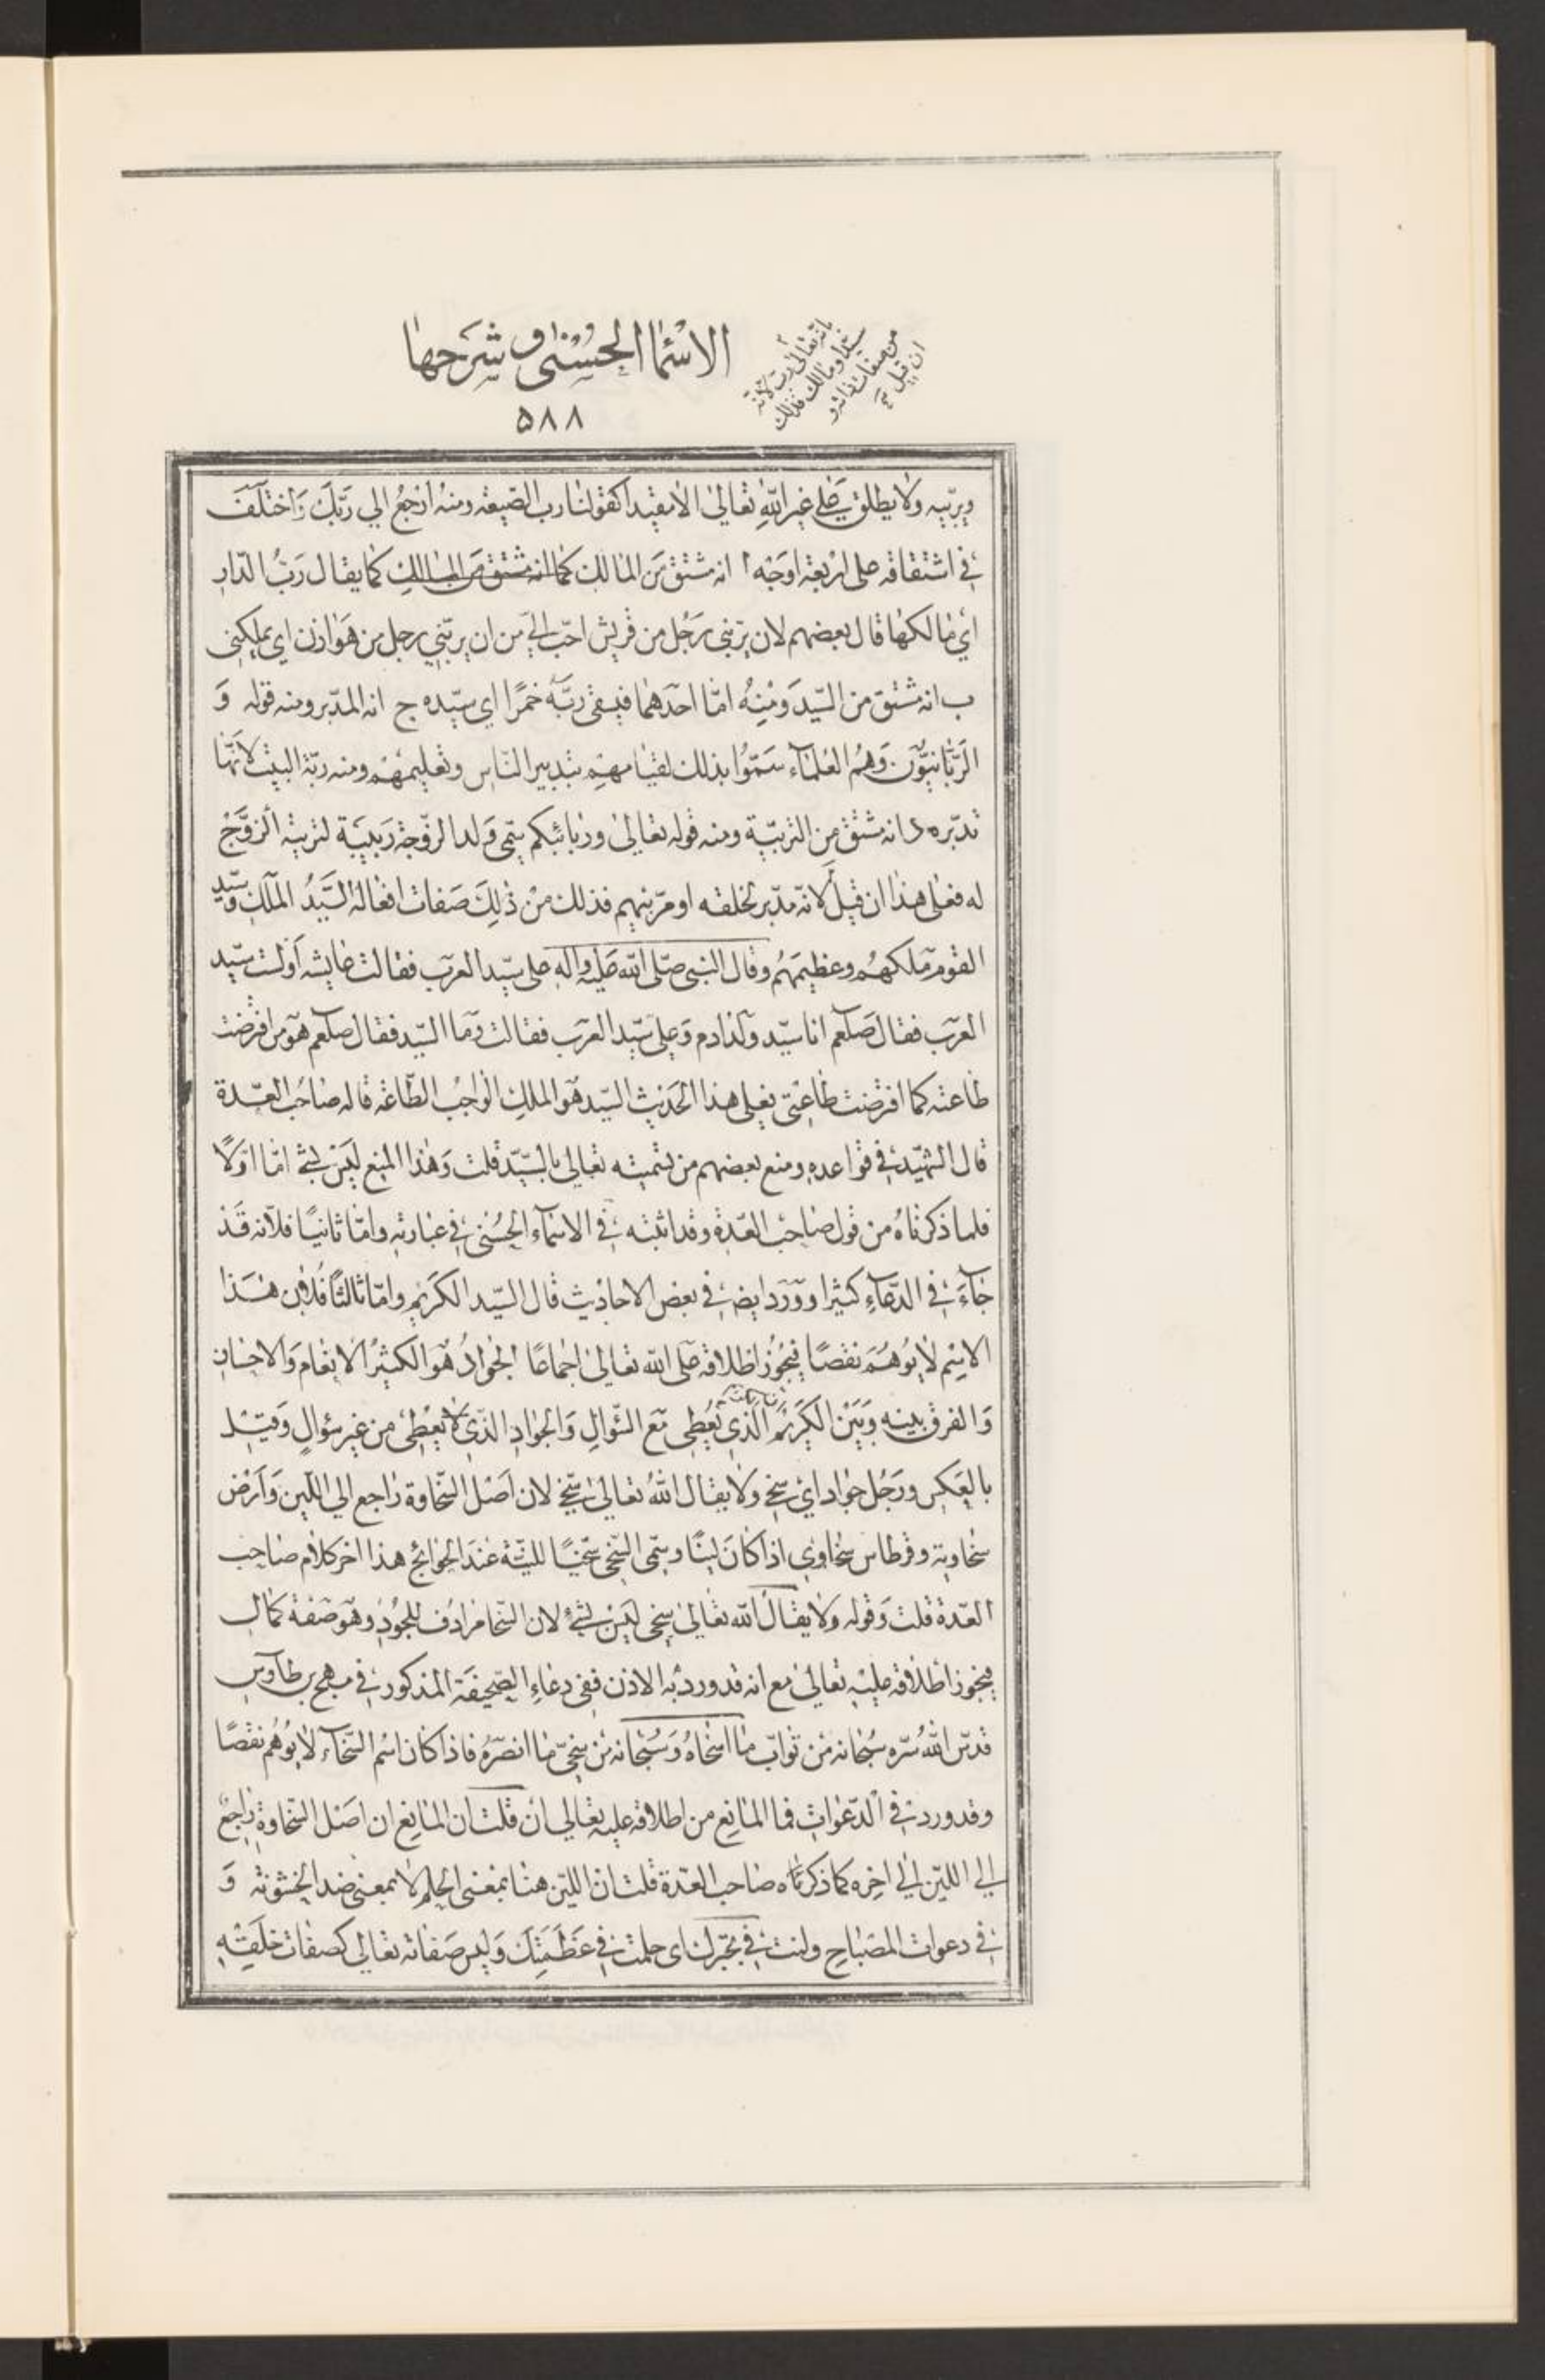 الاسماء الحسنى وشرحها
بانه تعالى رب لانه
سيد او مالك فذلك
من صفات ذاته و
ان قيل
۵۸۸
ويربيه ولا يطلق على غير الله تعالى الا مقيدا كقولنا رب الضيعة ومنه ارجع الي ربك واختلف
في اشتقاقه على اربعة اوجه ا انه مشتق من المالك كما انه مشتق من المالك كما يقال رب الدار
اي مالكها قال بعضهم لان يربني رجل من قريش احب الي من ان يربني رجل من هوازن اي يملكني
ب انه مشتق من السيد ومنه اما احدهما فيسقى ربه خمرا اي سيده ج انه المدبر ومنه قوله و
الربانيون وهم العلماء سموا بذلك لقيامهم بتدبير الناس وتعليمهم ومنه ربة البيت لانها
تدبره د انه مشتق من التربية ومنه قوله تعالى وربائبكم سمي ولد الزوجة ربيبة لتربية الزوج
له فعلى هذا ان قيل لانه مدبر لخلقه او مربيهم فذلك من ذلك صفات افعاله السيد الملك وسيد
القوم ملكهم وعظيمهم وقال النبي صلى الله عليه واله علي سيد العرب فقالت عايشه اولست سيد
العرب فقال صلعم انا سيد ولد ادم وعلي سيد العرب فقالت وما السيد فقال صلعم هو من افرضت
طاعته كما افرضت طاعتي فعلى هذا الحديث السيد هو الملك الواجب الطاعة قاله صاحب العدة
قال الشهيد في قواعده ومنع بعضهم من تسميته تعالي بالسيد قلت وهذا المنع ليس بشئ اما اولا
فلما ذكرناه من قول صاحب العدة وقد اثبته في الاسماء الحسنى في عبارته واما ثانيا فلانه قد
جاء في الدعاء كثيرا وورد ايضا في بعض الاحاديث قال السيد الكريم واما ثالثا فلان هذا
الاسم لا يوهم نقصا فيجوز اطلاقه على الله تعالى اجماعا الجواد هو الكثير الانعام والاحسان
والفرق بينه وبين الكريم الذي يعطي مع السؤال والجواد الذي لا يعطي من غير سؤال وقيل
بالعكس ورجل جواد اي سخي ولا يقال الله تعالى سخي لان اصل السخاوة راجع الي اللين وارض
سخاوية وقرطاس سخاوي اذا كان لينا وسمي السخي سخيا للينه عند الحوائج هذا اخر كلام صاحب
العدة قلت وقوله ولا يقال الله تعالى سخي ليس بشئ لان السخا مرادف للجود وهو صفة كمال
فيجوز اطلاقه عليه تعالى مع انه قد ورد به الاذن ففي دعاء الصحيفة المذكور في مهج بن طاوس
قدس الله سره سبحانه من تواب ما اسخاه وسبحانه من سخي ما انصره فاذا كان اسم السخاء لا يوهم نقصا
وقد ورد في الدعوات فما المانع من اطلاقه عليه تعالي ان قلت ان المانع ان اصل السخاوة راجع
الي اللين الي اخره كما ذكرناه صاحب العدة قلت ان اللين هنا بمعنى الحلم لا بمعنى ضد الخشونة و
في دعوات المصباح ولنت في تجبرك اي حلمت في عظمتك وليس صفاته تعالي كصفات خلقه